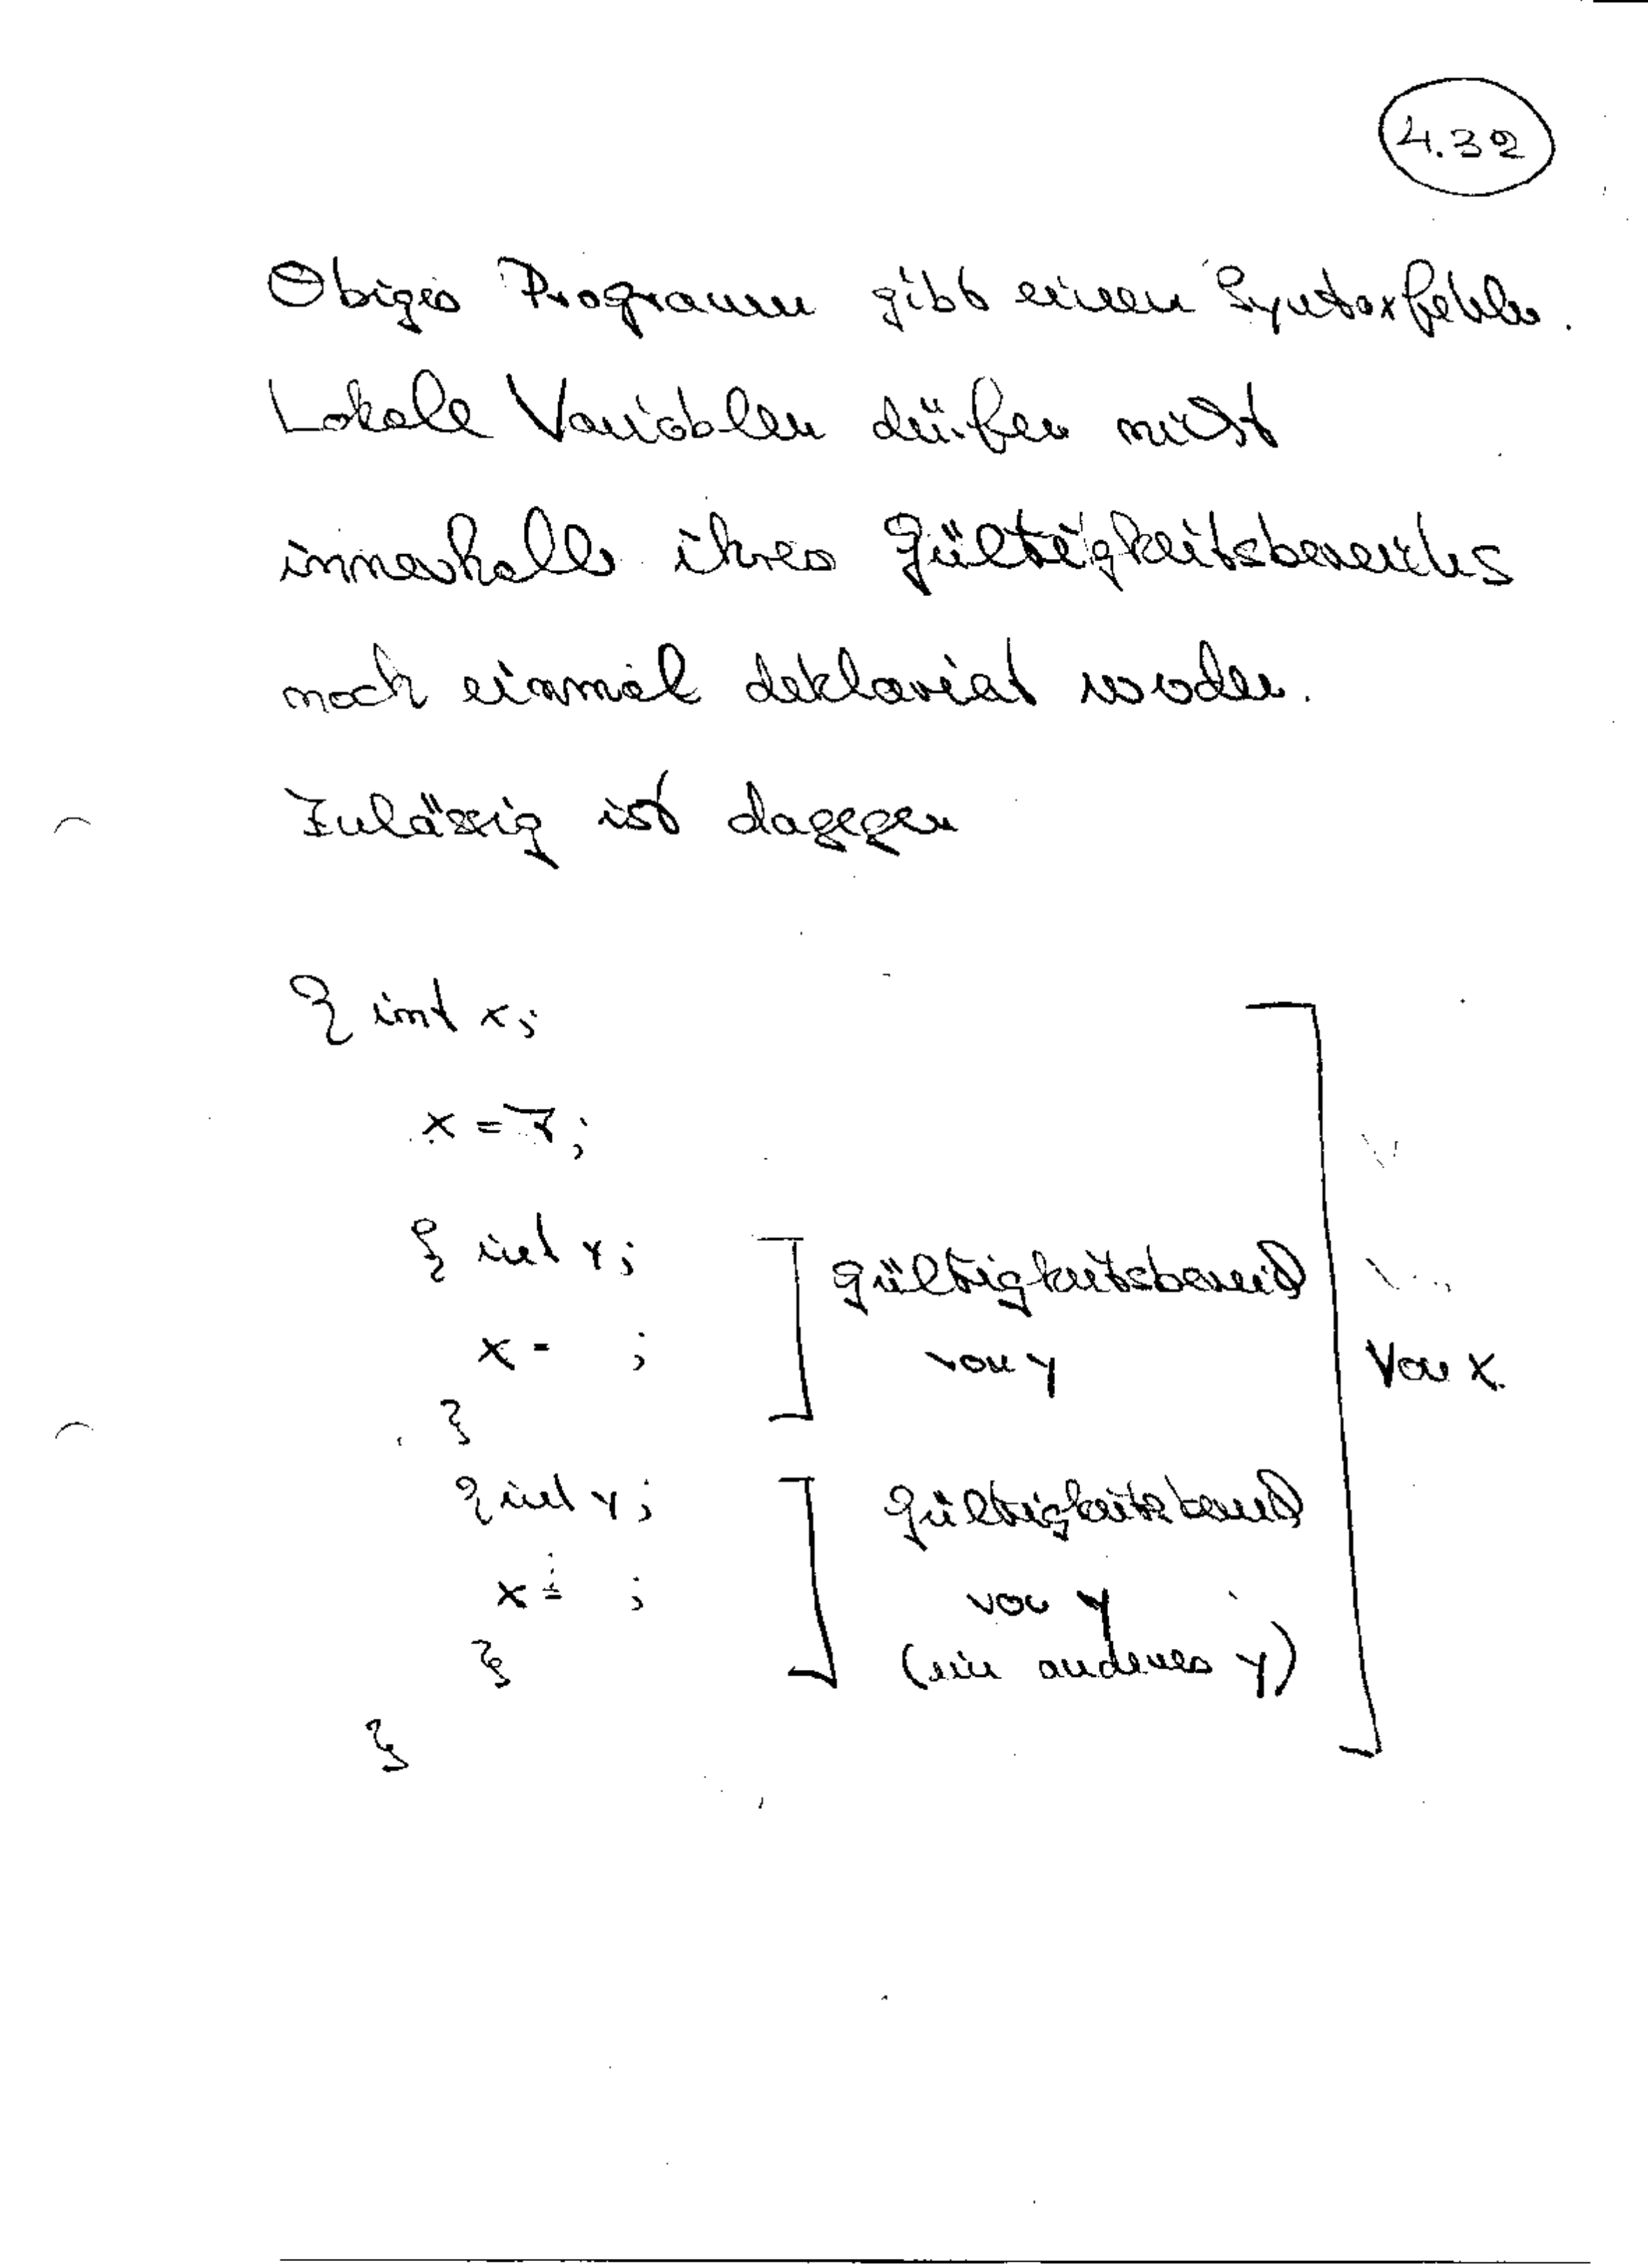 4.32
Obiges Programm gibt einen Syntaxfehler.
Lokale Variablen dürfen nicht
innerhalb ihres Gültigkeitsbereichs
noch einmal deklariert werden.
Zulässig ist dagegen
{ int x;
x = 7;
{ int y;
Gültigkeitsbereich
x = ;
von y
von x
}
{ int y;
Gültigkeitsbereich
x = ;
von y
}
(ein anderes y)
}